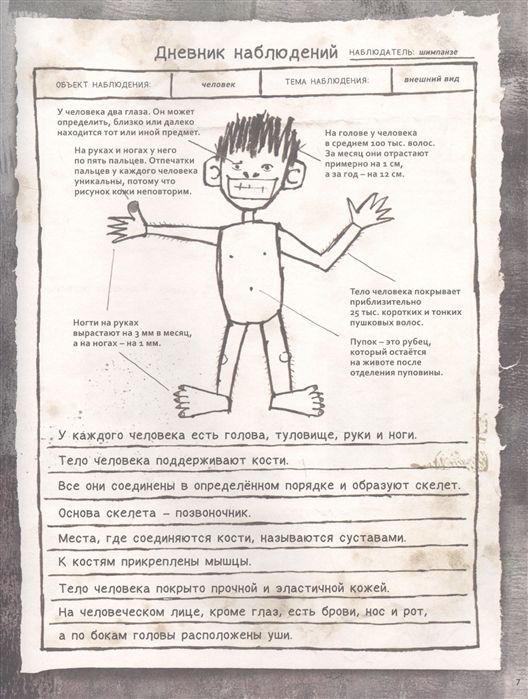 Дневник наблюдений
НАБЛЮДАТЕЛЬ: шимпанзе
ОБЪЕКТ НАБЛЮДЕНИЯ: человек
ТЕМА НАБЛЮДЕНИЯ: внешний вид
У человека два глаза. Он может
определить, близко или далеко
находится тот или иной предмет.
На руках и ногах у него
по пять пальцев. Отпечатки
пальцев у каждого человека
уникальны, потому что
рисунок кожи неповторим.
На голове у человека
в среднем 100 тыс. волос.
За месяц они отрастают
примерно на 1 см,
а за год – на 12 см.
Ногти на руках
вырастают на 3 мм в месяц,
а на ногах – на 1 мм.
Тело человека покрывает
приблизительно
25 тыс. коротких и тонких
пушковых волос.
Пупок – это рубец,
который остаётся
на животе после
отделения пуповины.
У каждого человека есть голова, туловище, руки и ноги.
Тело человека поддерживают кости.
Все они соединены в определённом порядке и образуют скелет.
Основа скелета – позвоночник.
Места, где соединяются кости, называются суставами.
К костям прикреплены мышцы.
Тело человека покрыто прочной и эластичной кожей.
На человеческом лице, кроме глаз, есть брови, нос и рот,
а по бокам головы расположены уши.
7